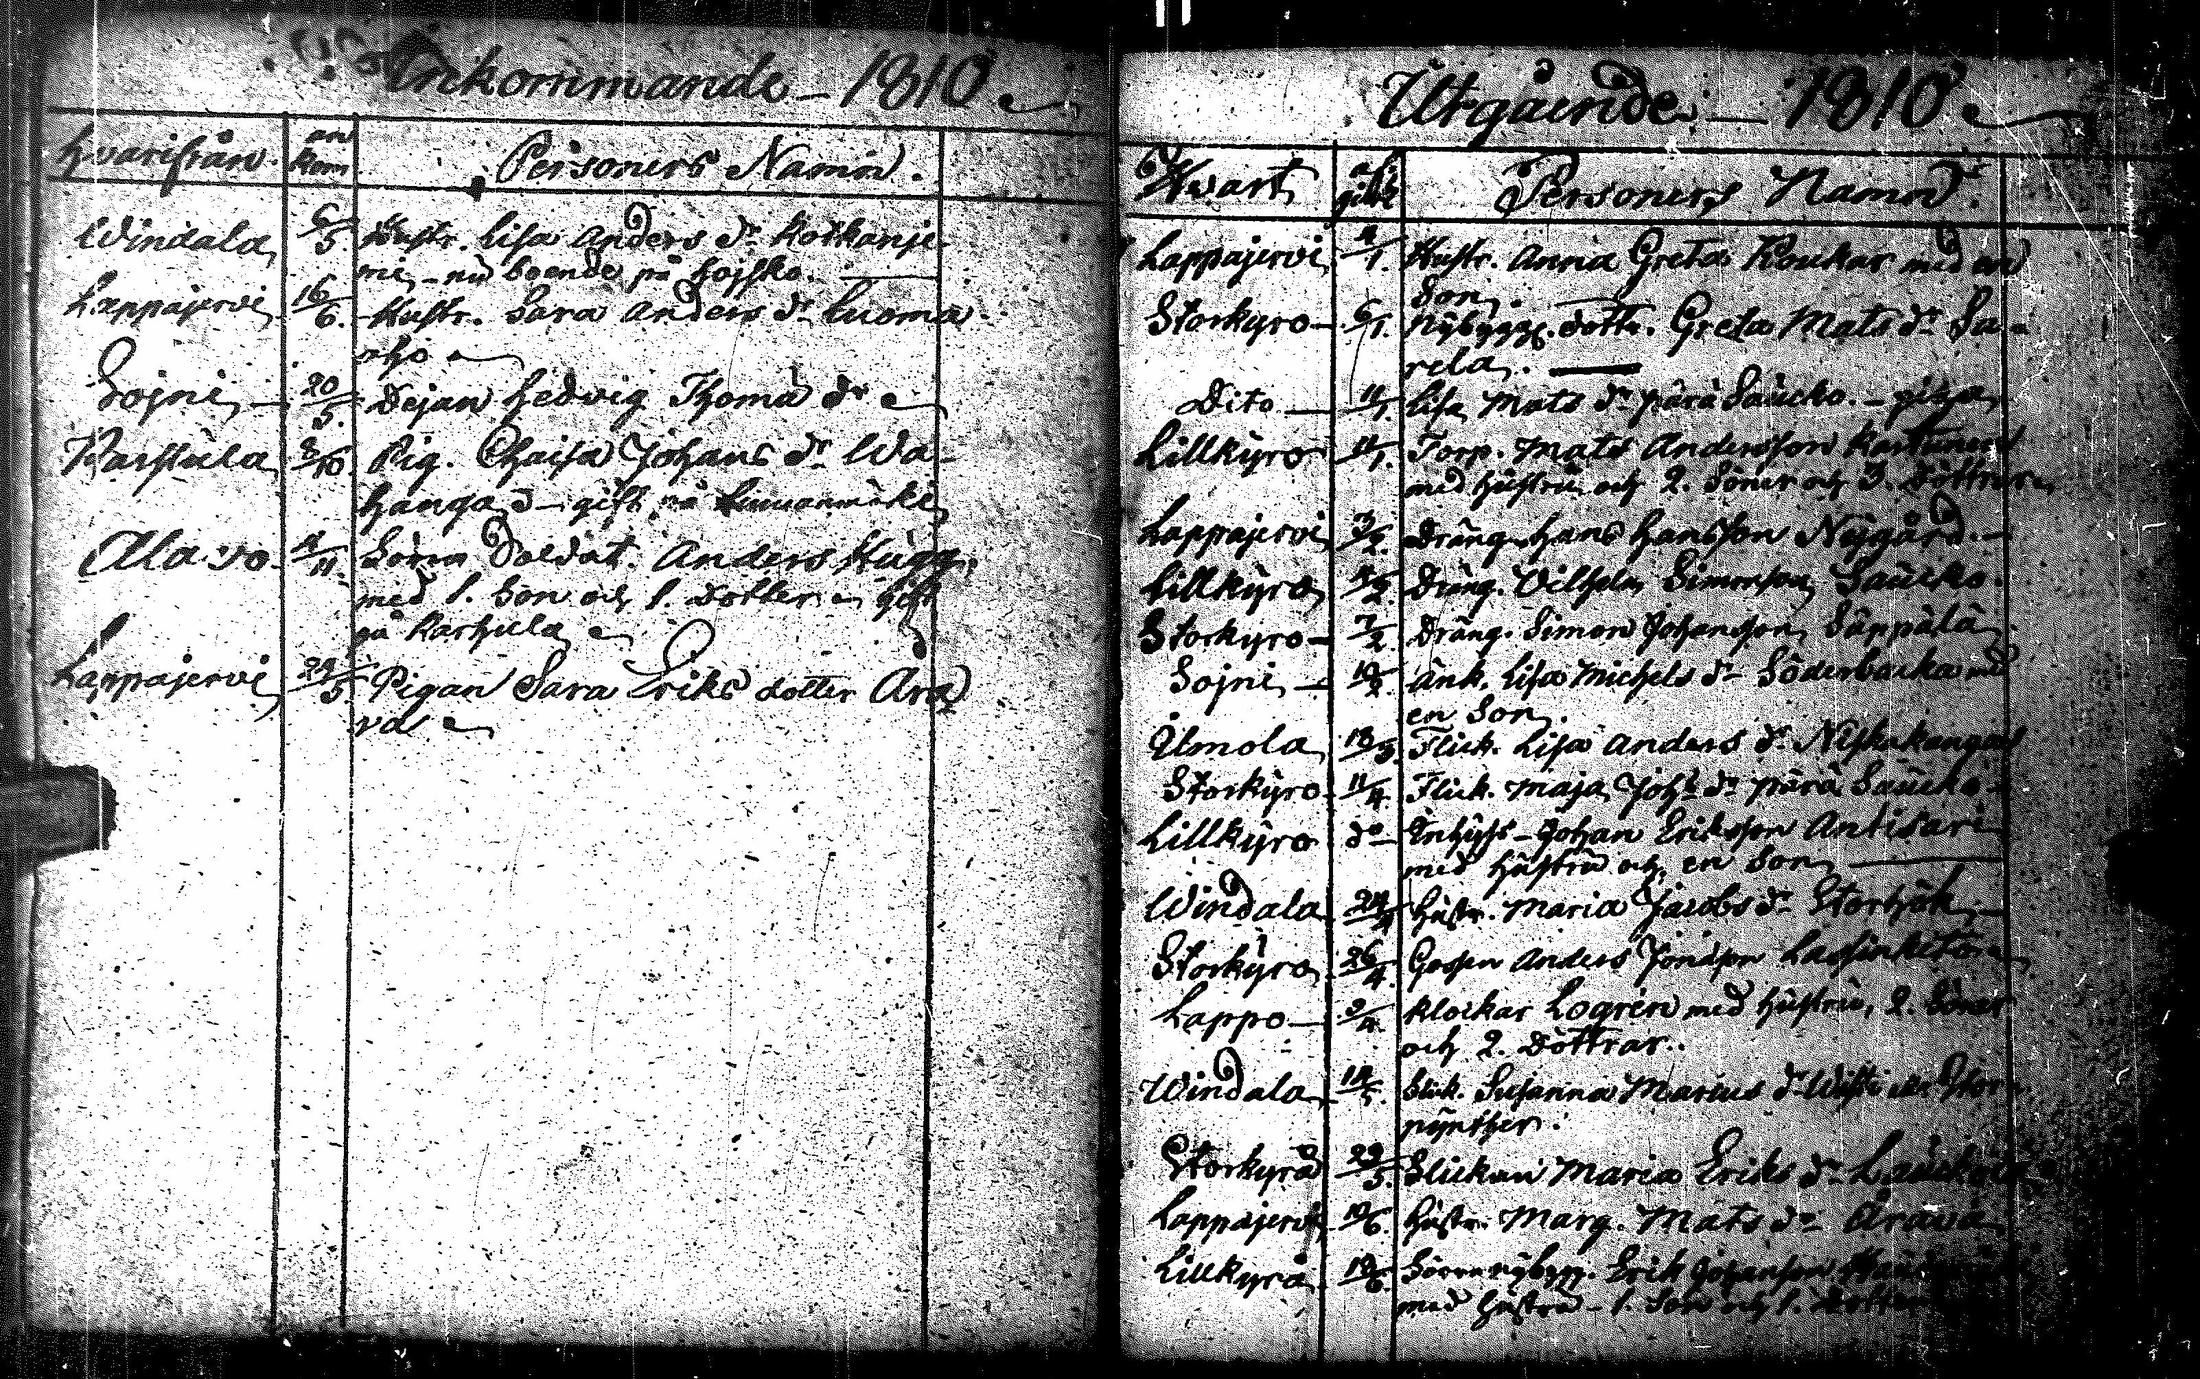 Inkommande – 1810
Hvarifrån. an kom Personers Namn.
Windala 6/5. Hustr. Lisa Anders dr. Kotkanje-
mi – nu boende på Hojsko. —
Lappajervi 16/6. Hustr. Sara Anders dr. Luoma
aho
Sojni – 20/5. Dejan Hedvig Thoma dr
Karstula 3/10. Pig. Chaisa Johans dr. Wa-
hanga – gift på
Alavo. 4/11. Soldat. Anders Hugg,
med 1. Son och 1. dotter gift
på Karhula
Lappajervi 29/5. Pigan Sara Eriks dotter Ara
va
Utgående – 1810.
Hwart Personers Namn.
Lappajervi 4/1. Hustr. Anna Greta Koukar med en
Son.
Storkyro – 6/1. Nybygg. dottr. Greta Mats dr Sa-
rela.
Dito – 11/1. Lisa Mats dr pärä Saucko. – piga
Lillkyro 11/1. Torp. Mats Andersson
med hustru och 2. Söner och 3. Döttrar
Lappajervi 3/2. Dräng Hans Hansson Nygård. –
Lillkyro Dräng. Vilhelm Simonson Saucko.
Storkyro – 7/2 Dräng. Simon Johansson Säppälä
Sojni – 10/2. änk. Lisa Michels dr Söderbacka med
en Son.
Ilmola 18/3. Flick. Lisa Anders dr. Niskakangas
Storkyro 11/4. Flick. Maja Joh: dr pärä Saucko
Lillkyro do Inhyss – Johan Eriksson Antisari
med hustru och en Son —
Windala 24/4 hustr. Maria Jacobs dr Storhök –
Storkyro 26/4. Gossen Anders Jonasson
Lappo – 2/4. Klockar Logren med hustru, 2. Söner
och 2. Döttrar.
Windala 14/5. Flick. Susanna Marius dr
pynther.
Storkyrå 29/5. Flickan Maria Eriks dr
Lappajervi 10/6. hustr. Marg. Mats dr Arava
Lillkyrå 19/6. nybygg. Erik Johansson
med hustru – 1. Son och 1. dotter